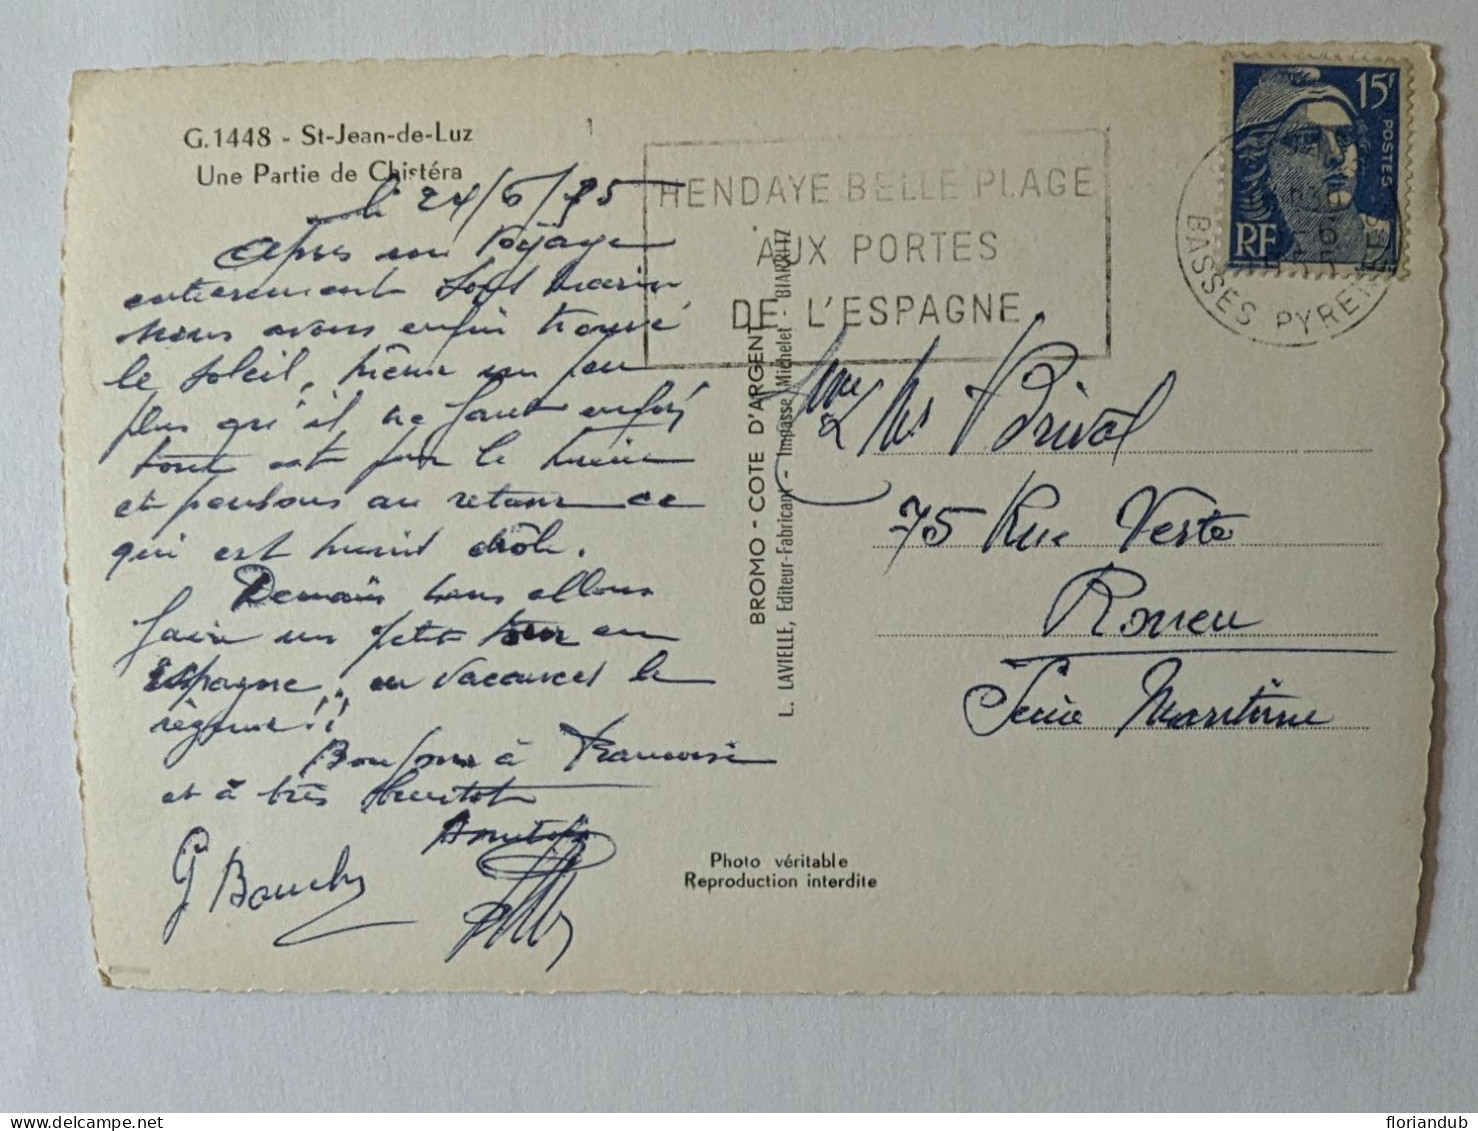 G.1448 - St-Jean-de-Luz
Une Partie de Chistéra
le 24/6/
Après un voyage
entièrement sous marin,
nous avons enfin trouvé
le soleil, même un peu
plus qu'il ne faut enfin
tout est pour le mieux
et pensons au retour ce
qui est moins drôle.
Demain nous allons
faire un petit tour en
espagne, en vacances le
régime!!
Bonjour à Francoise
et à très bientot
Amitiés
G Bouchy
HENDAYE BELLE PLAGE
AUX PORTES
DE L'ESPAGNE
15F
POSTES
RF
BASSES PYRENEES
BROMO - COTE D'ARGENT
L. LAVIELLE, Editeur-Fabricant - Impasse Michelet - BIARRITZ
Mme & Mr Prival
75 Rue Verte
Rouen
Seine Maritime
Photo véritable
Reproduction interdite
floriandub